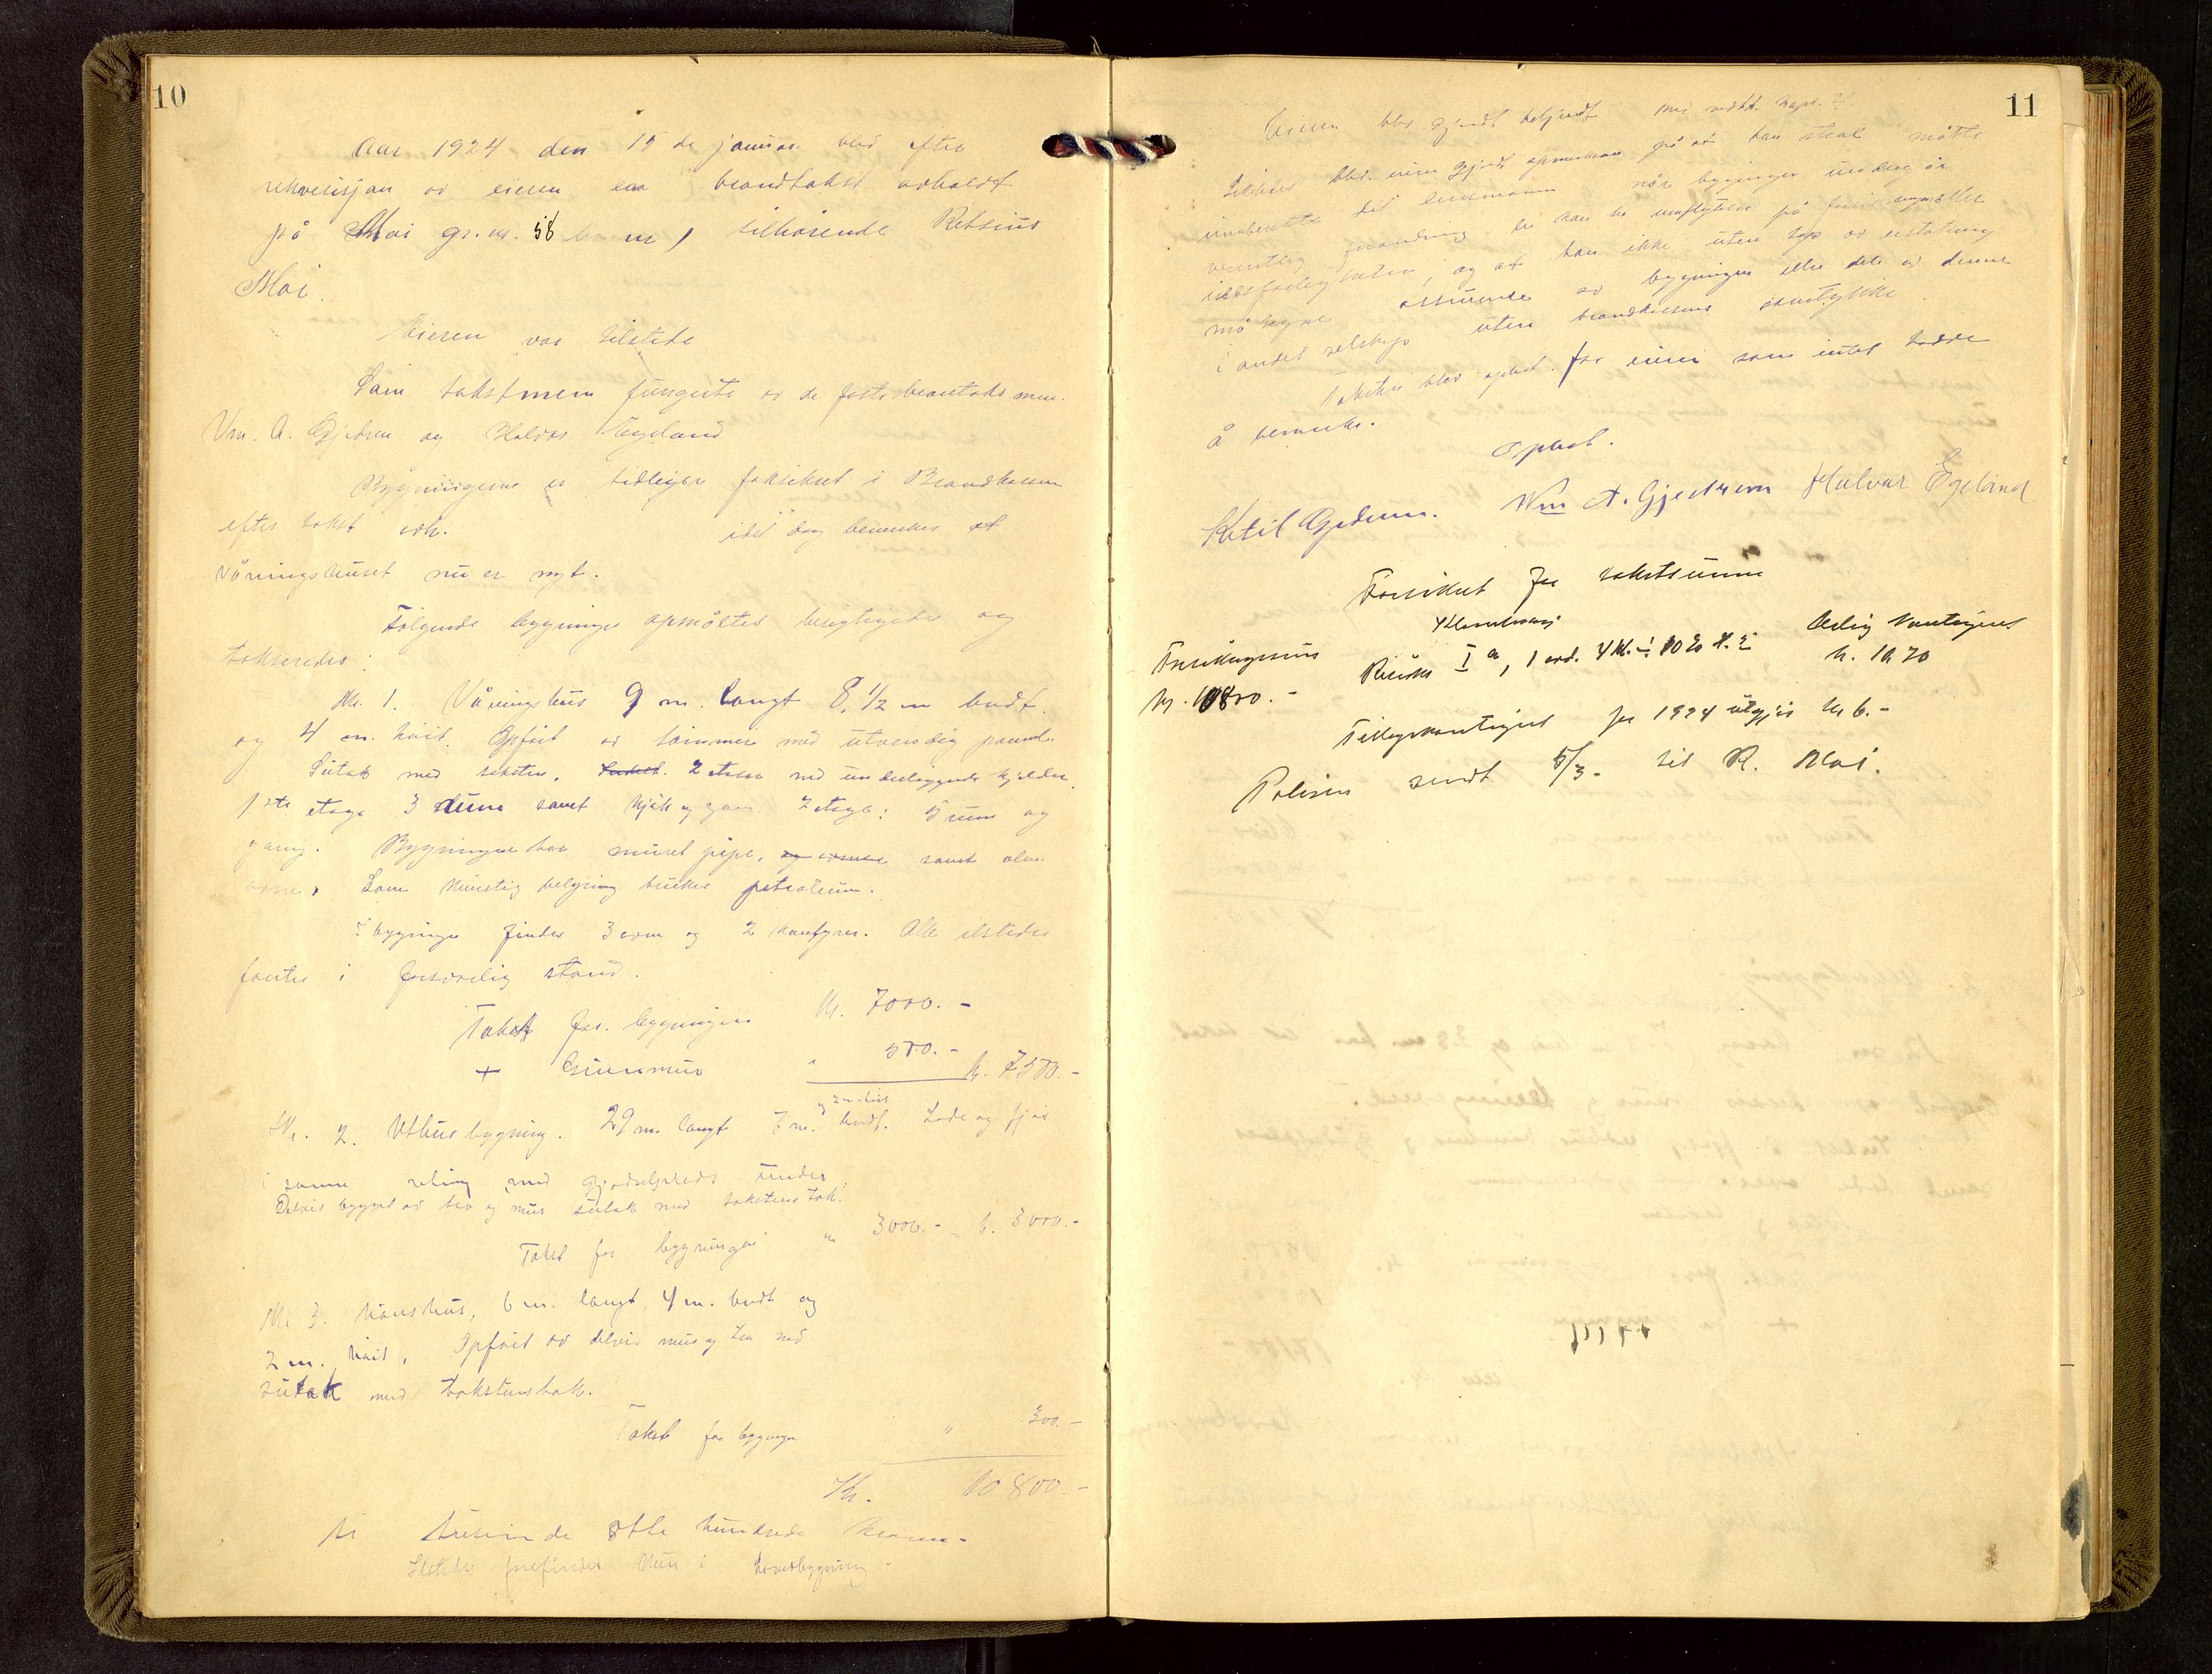 10
Aar 1924 den 15 de januar. blev efter
rekvisisjon av eieren en brandtakst avholdt
på Moi gr. nr. 58 b nr 1 tilhørende Retsius
Moi.
Eieren var tilstede
Som takstmenn fungerte av de faste branntaks menn.
Wm. A. Gjedrem og Halvor Egeland
Bygningene er tidligere forsikret i Brandkassen
efter takst avh. idet dog bemerkes at
våningshuset nu er nyt.
Følgende bygninger opmåltes besigtigedes og
takseredes:
Nr. 1. Våningshus 9 m. langt 8,1/2 m bredt.
og 4 m. høit. Opført av tømmer med utvendig panel.
Sutak med taksten. 2 etasse med underliggende kjelder.
1ste etage 3 rum samt kjøk og gang 2 etage: 5 rum og
gang. Bygningen har muret pipe, og ovne samt
ovne. Som kunstig belysning brukes petroleum.
I bygningen findes 3 ovne og 2 komfyrer. Alle ildsteder
fantes i forsvarlig stand.
Takst for bygningen Kr. 7000.-
+ Grunnmur " 500.- kr. 7500.-
og 2 m høit
Nr. 2. Uthusbygning. 29 m. langt 7 m. bredt. Lade og fjøs
i samme med gjødselplads under
Delvis bygget av tre og mur sutak med takstens tak.
Takst for bygningen " 3000.- kr. 3000.-
Nr. 3. Hønshus, 6 m. langt, 4 m. bredt og
2 m. høit, Opført av delvis mur og tre med
sutak med takstenstak.
Takst for bygningen " 300.-
Kr. 10 800.-
ti tusinde otte hundrede kroner-
Ildsteder forefindes kun i hovedbygning-
11
Eieren blev gjort bekjendt med vedtekt. kapt.
Likeles blev eieren gjort opmerksom på at han skal måtte
innberette til lensmann når bygninger undergår
vesentlig forandring
ildsfarligheten, og at han ikke uten tap av erstatning
må tegne assurance av bygningen eller dele av denne
i andet selskap uten brandkassens samtykke.
Taksten blev oplest for eieren som intet hadde
å bemerke.
Oplest.
Ketil Gjedrem. Wm A. Gjedrem Halvar Egeland
Forsikret for takstsummen
Forsikringssum Risiko I a, 1 ord. 4 Kl. Aarlig Kontingent
kr. 10800.- kr. 10 70
Tillegskontingent for 1924 utgjør kr 6.-
Polisen sendt 5/3- til R. Moi.